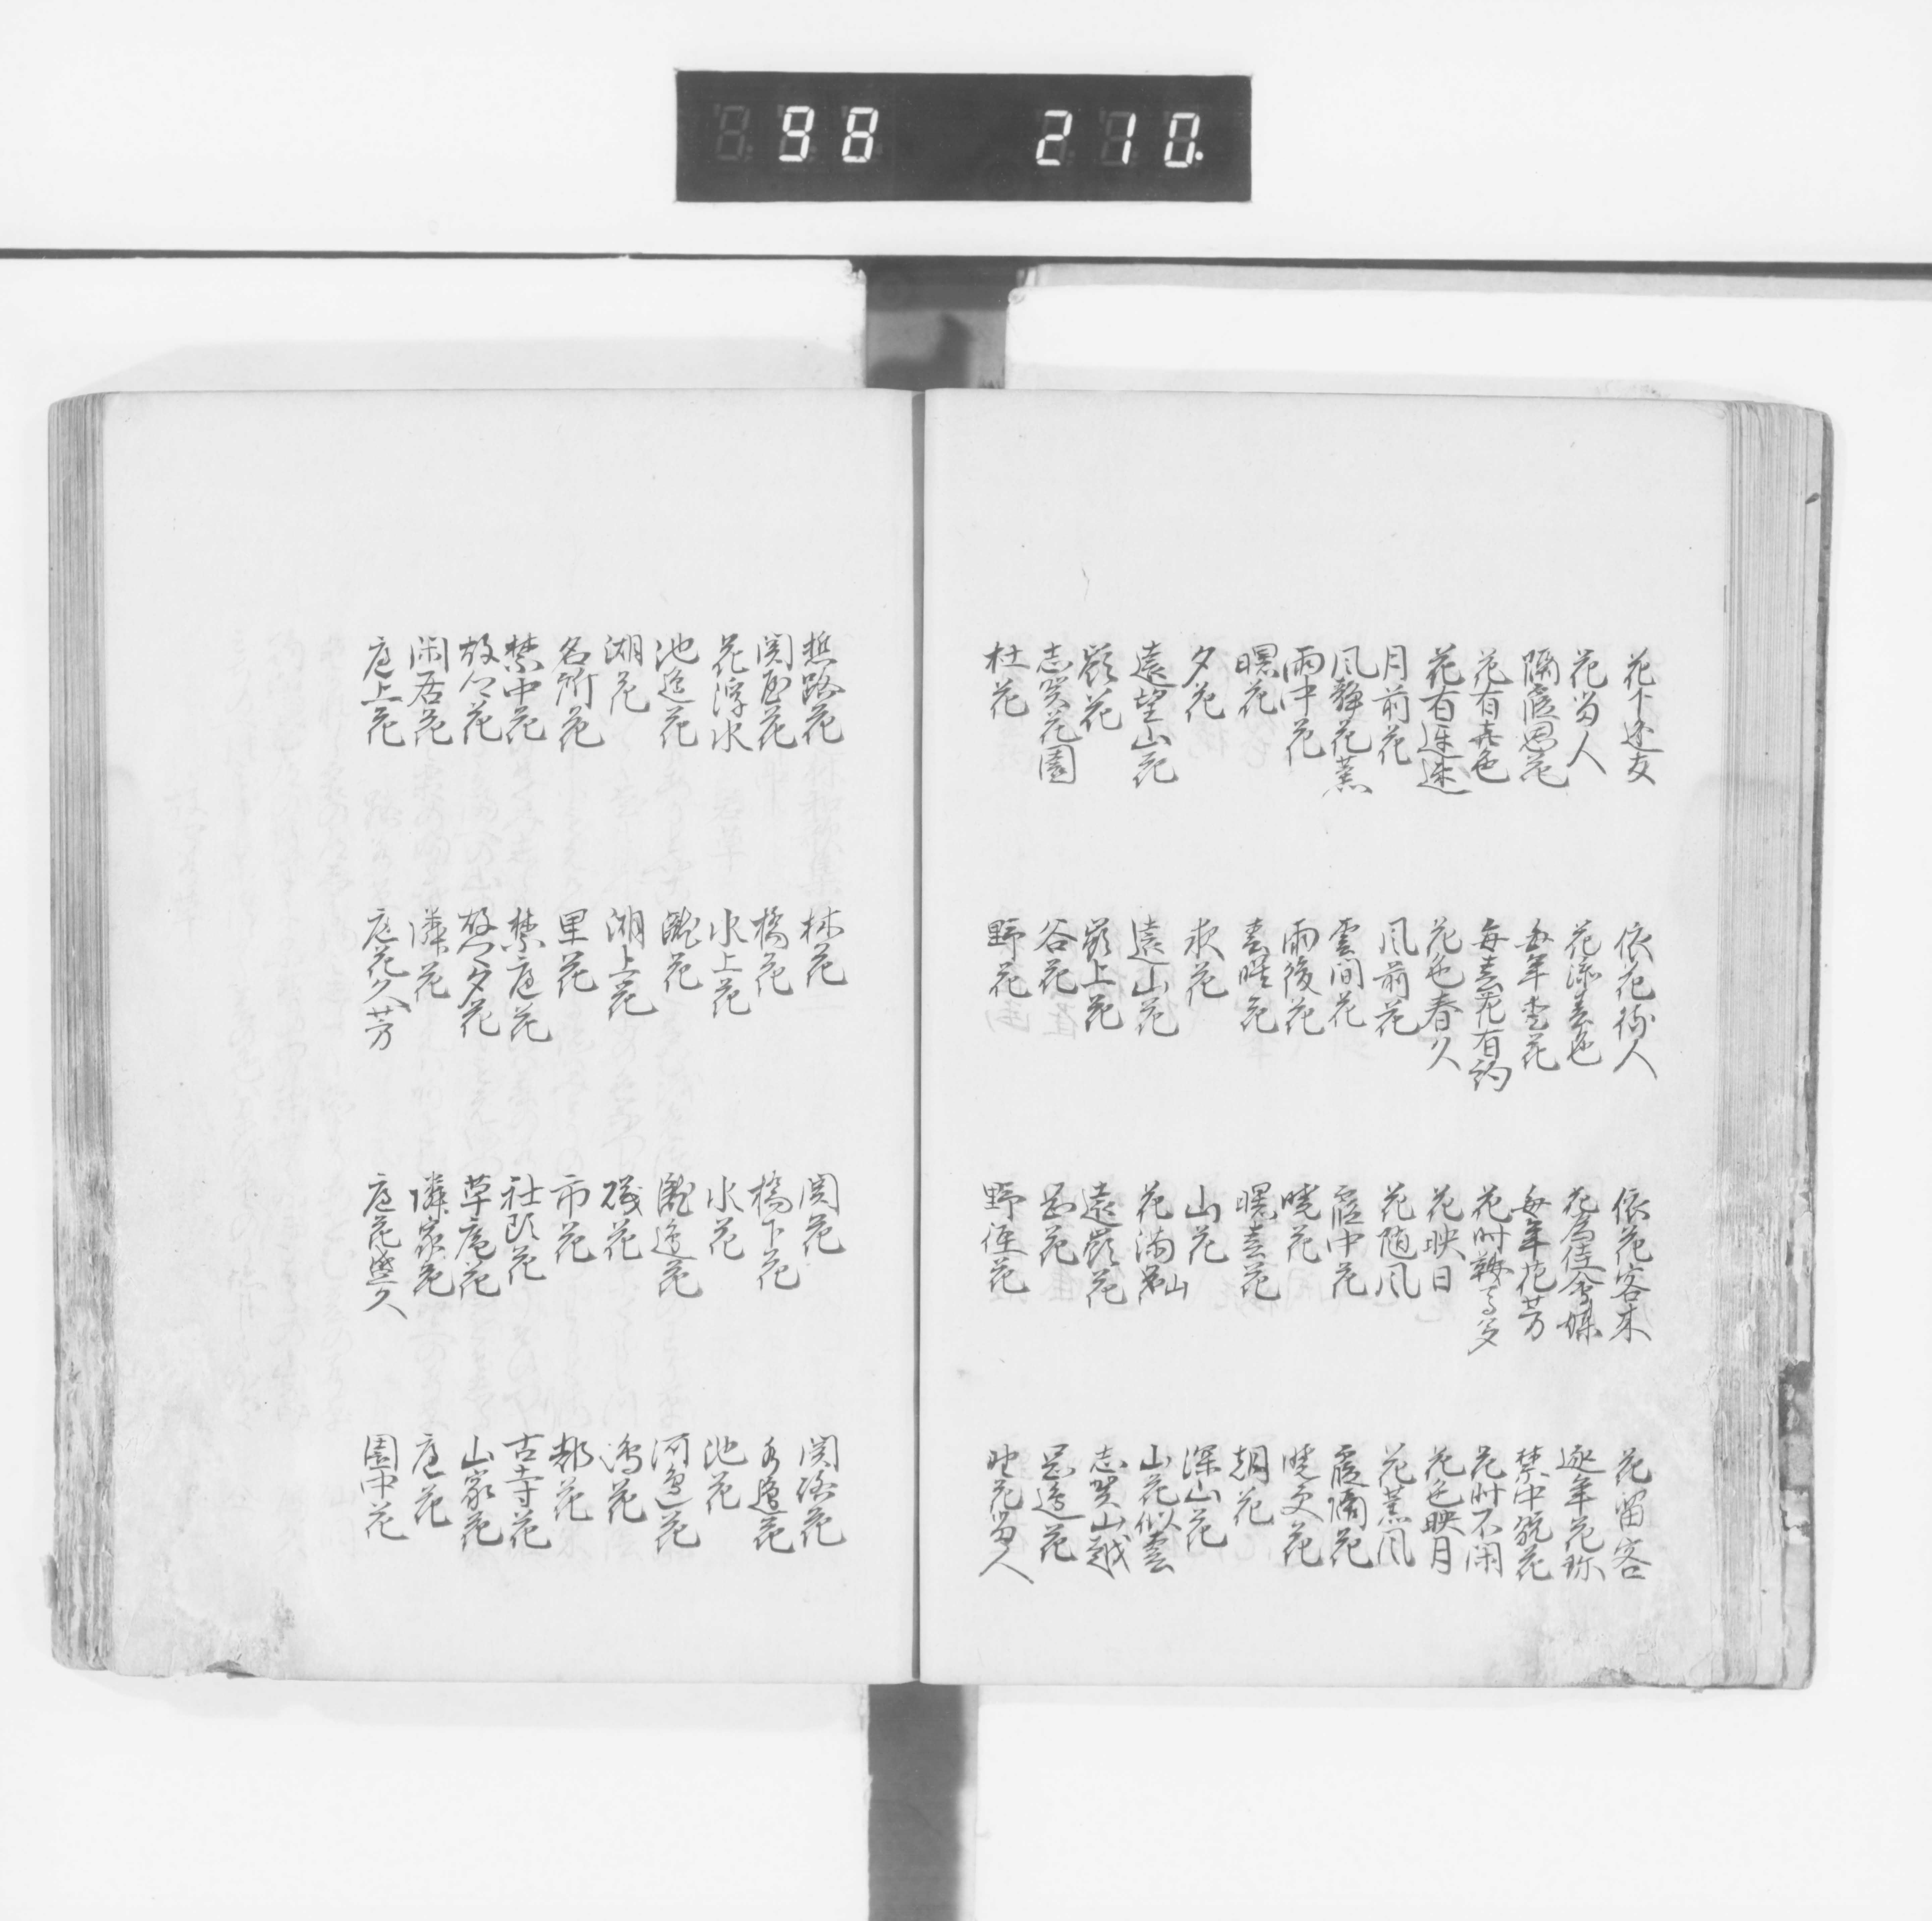 98 210
花下逢友 依花待人 依花客来 花留客
花留人 花添春色 花為佳会媒 逐年花珍
隔霞思花 毎年愛花 毎年花芳 禁中翫花
花有喜色 毎春花有約 花時鞍馬多 花時不閑
花有遅速 花色春久 花映日 花色映月
月前花 風前花 花随風 花薫風
風静花薫 雲間花 霞中花 霞隔花
雨中花 雨後花 暁花 暁更花
曙花 春曙花 曙春花 朝花
夕花 夜花 山花 深山花
遠望山花 遠山花 花満山 山花似雲
嶺花 嶺上花 遠嶺花 志賀山越
志賀花園 谷花 岡花 岡邊花
杜花 野花 野徑花 野花留人
路花 林花 関花 関路花
関屋花 橋花 橋下花 水邊花
花浮水 水上花 水花 池花
池邊花 瀧花 瀧邊花 河邊花
湖花 湖上花 磯花 嶋花
名所花 里花 市花 都花
禁中花 禁庭花 社頭花 古寺花
故郷花 故郷夕花 草庵花 山家花
閑居花 隣花 隣家花 庭花
庭上花 庭花久芳 庭花盛久 園中花